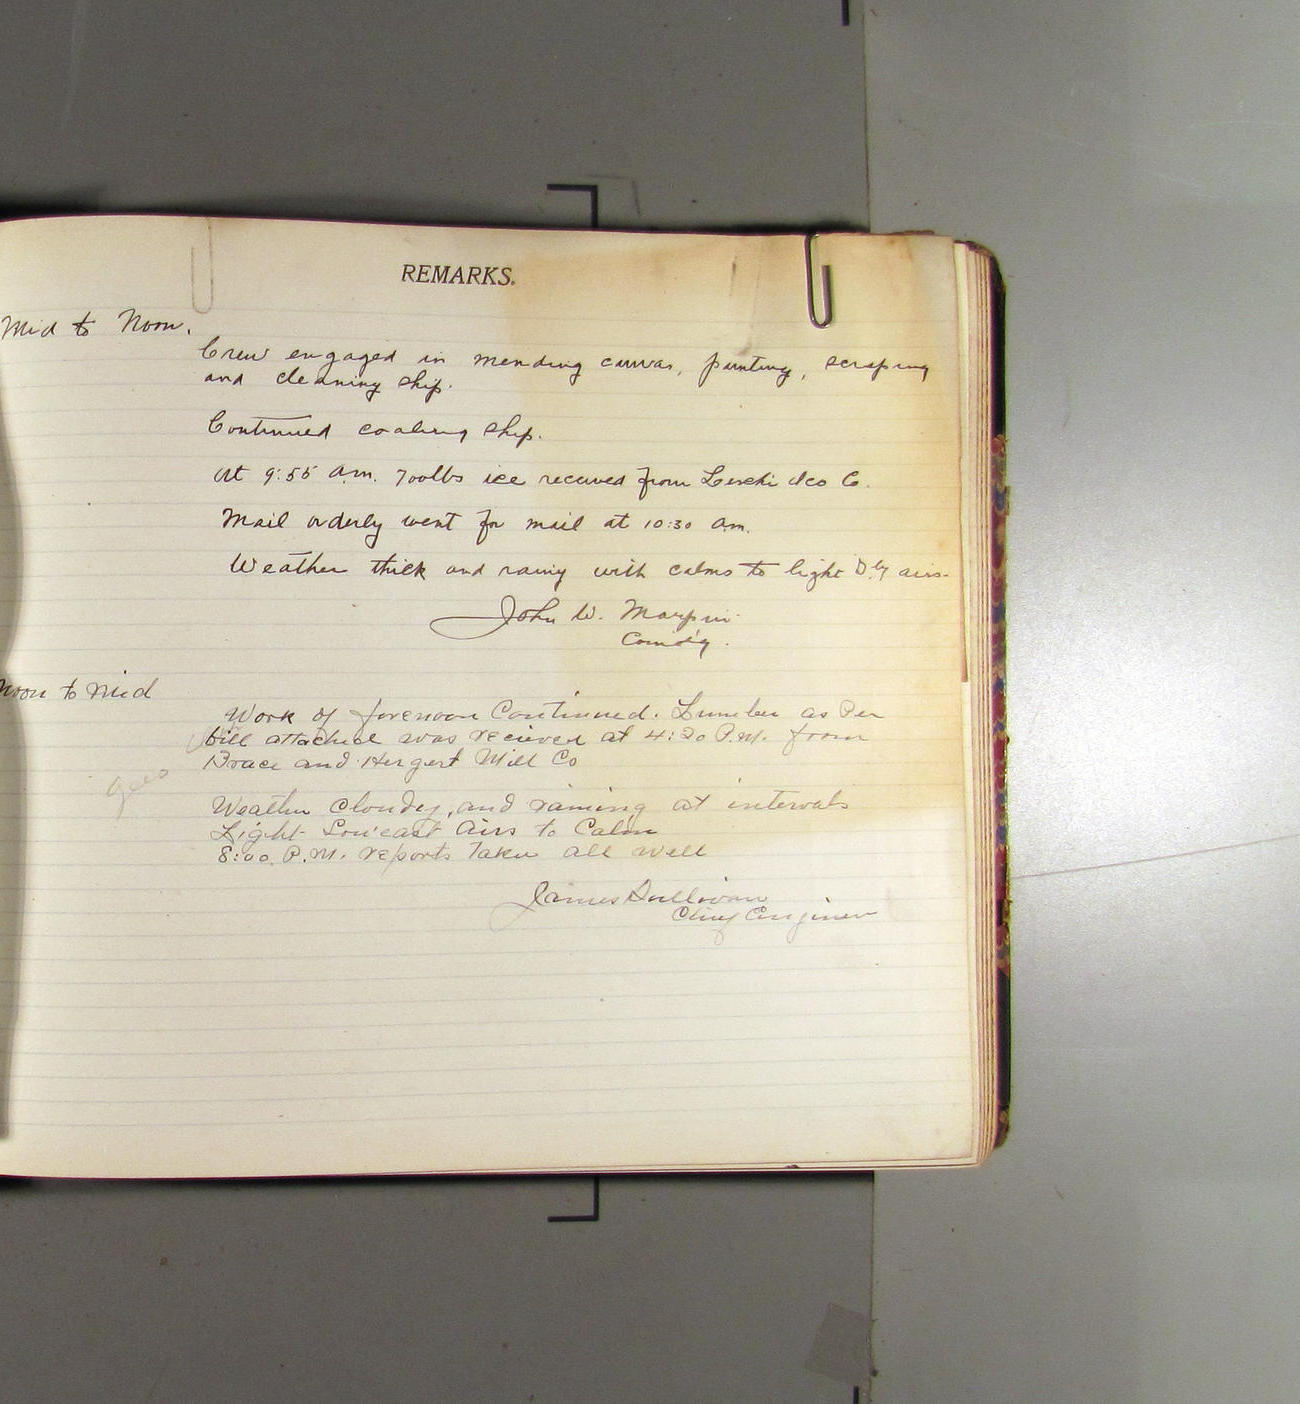 REMARKS.
Mid to Noon.
Crew engaged in mending canvas, painting, scraping
and cleaning ship.
Continued coaling ship.
At 9:55 a.m. 700lbs ice received from Ice Co.
Mail orderly went for mail at 10:30 a.m.
Weather thick and rainy with calms to light airs.
John W.
Comd'g.
Noon to Mid
Work of forenoon Continued. Lumber as Per
bill attached was recieved at 4:20 P.M. from
Brace and Hergert Mill Co
Weather Cloudey, and raining at intervals
Light Sou'east Airs to Calm
8:00 P.M. reports Taken all well
James Sullivan
Chief Enginer